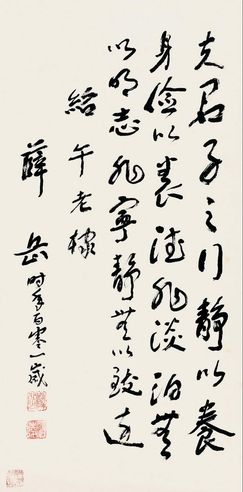 夫君子之行靜以養
身儉以養德非淡泊無
以明志非寧靜無以致遠
給午老棣
薛岳時年百零一歲